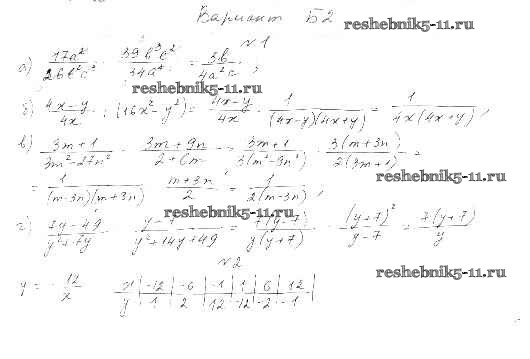 Вариант Б2
reshebnik5-11.ru
№1
а) 17a²/26b²c³ · 39b³c²/34a⁴ = 3b/4a²c ;
reshebnik5-11.ru
б) 4x-y/4x : (16x²-y²) = 4x-y/4x · 1/(4x-y)(4x+y) = 1/4x(4x+y) ,
в) 3m+1/3m²-27n² · 3m+9n/2+6m = 3m+1/3(m²-9n²) · 3(m+3n)/2(3m+1) =
reshebnik5-11.ru
= 1/(m-3n)(m+3n) · m+3n/2 = 1/2(m-3n) ,
reshebnik5-11.ru
г) 7y-49/y²+7y : y-7/y²+14y+49 = 7(y-7)/y(y+7) · (y+7)²/y-7 = 7(y+7)/y
№2
reshebnik5-11.ru
y = -12/x
x | -12 | -6 | -1 | 1 | 6 | 12
y | 1 | 2 | 12 | -12 | -2 | -1